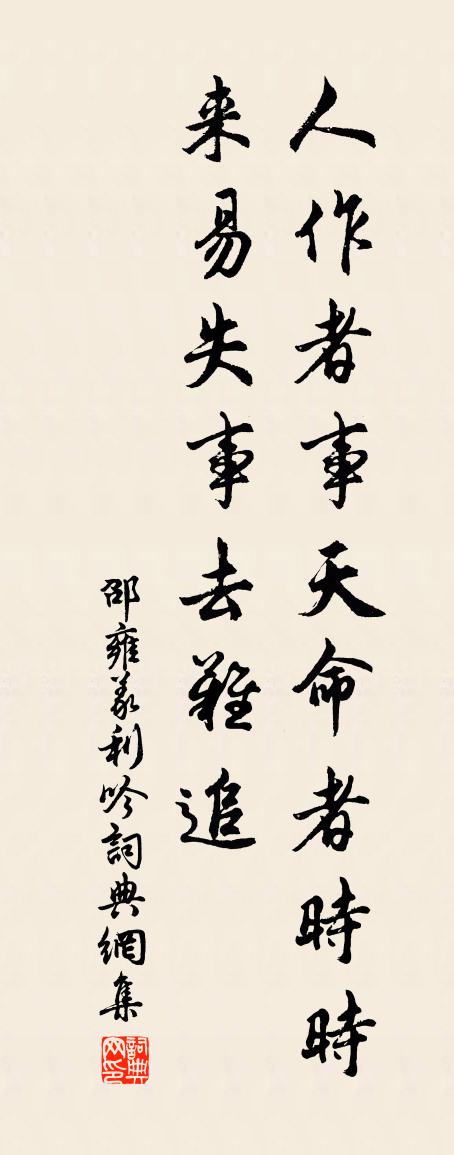 人作者事天命者時時
来易失事去難追
邵雍義利吟詞典網集
詞典网印